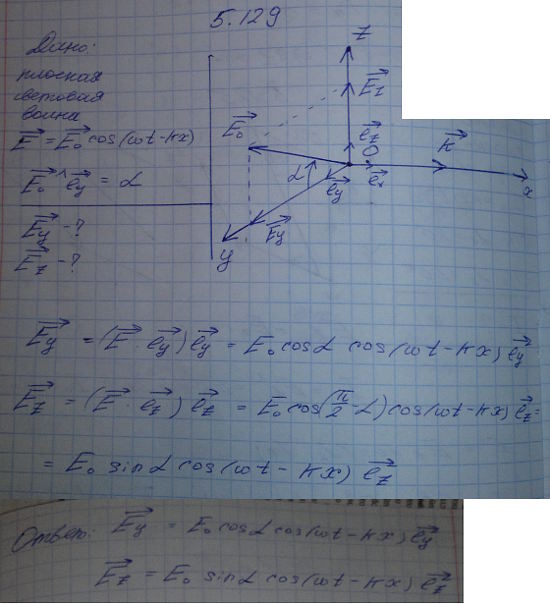 5.129
Дано:
плоская
световая
волна
E⃗ = E⃗₀ cos(ωt - kx)
E⃗₀ ^ e⃗y = α
E⃗y - ?
E⃗z - ?
z
E⃗z
E⃗₀
e⃗z
O
k⃗
α
e⃗y
e⃗x
x
E⃗y
y
E⃗y = (E⃗ · e⃗y) e⃗y = E₀ cosα cos(ωt - kx) e⃗y
E⃗z = (E⃗ · e⃗z) e⃗z = E₀ cos(π/2 - α) cos(ωt - kx) e⃗z =
= E₀ sinα cos(ωt - kx) e⃗z
Ответ: E⃗y = E₀ cosα cos(ωt - kx) e⃗y
E⃗z = E₀ sinα cos(ωt - kx) e⃗z